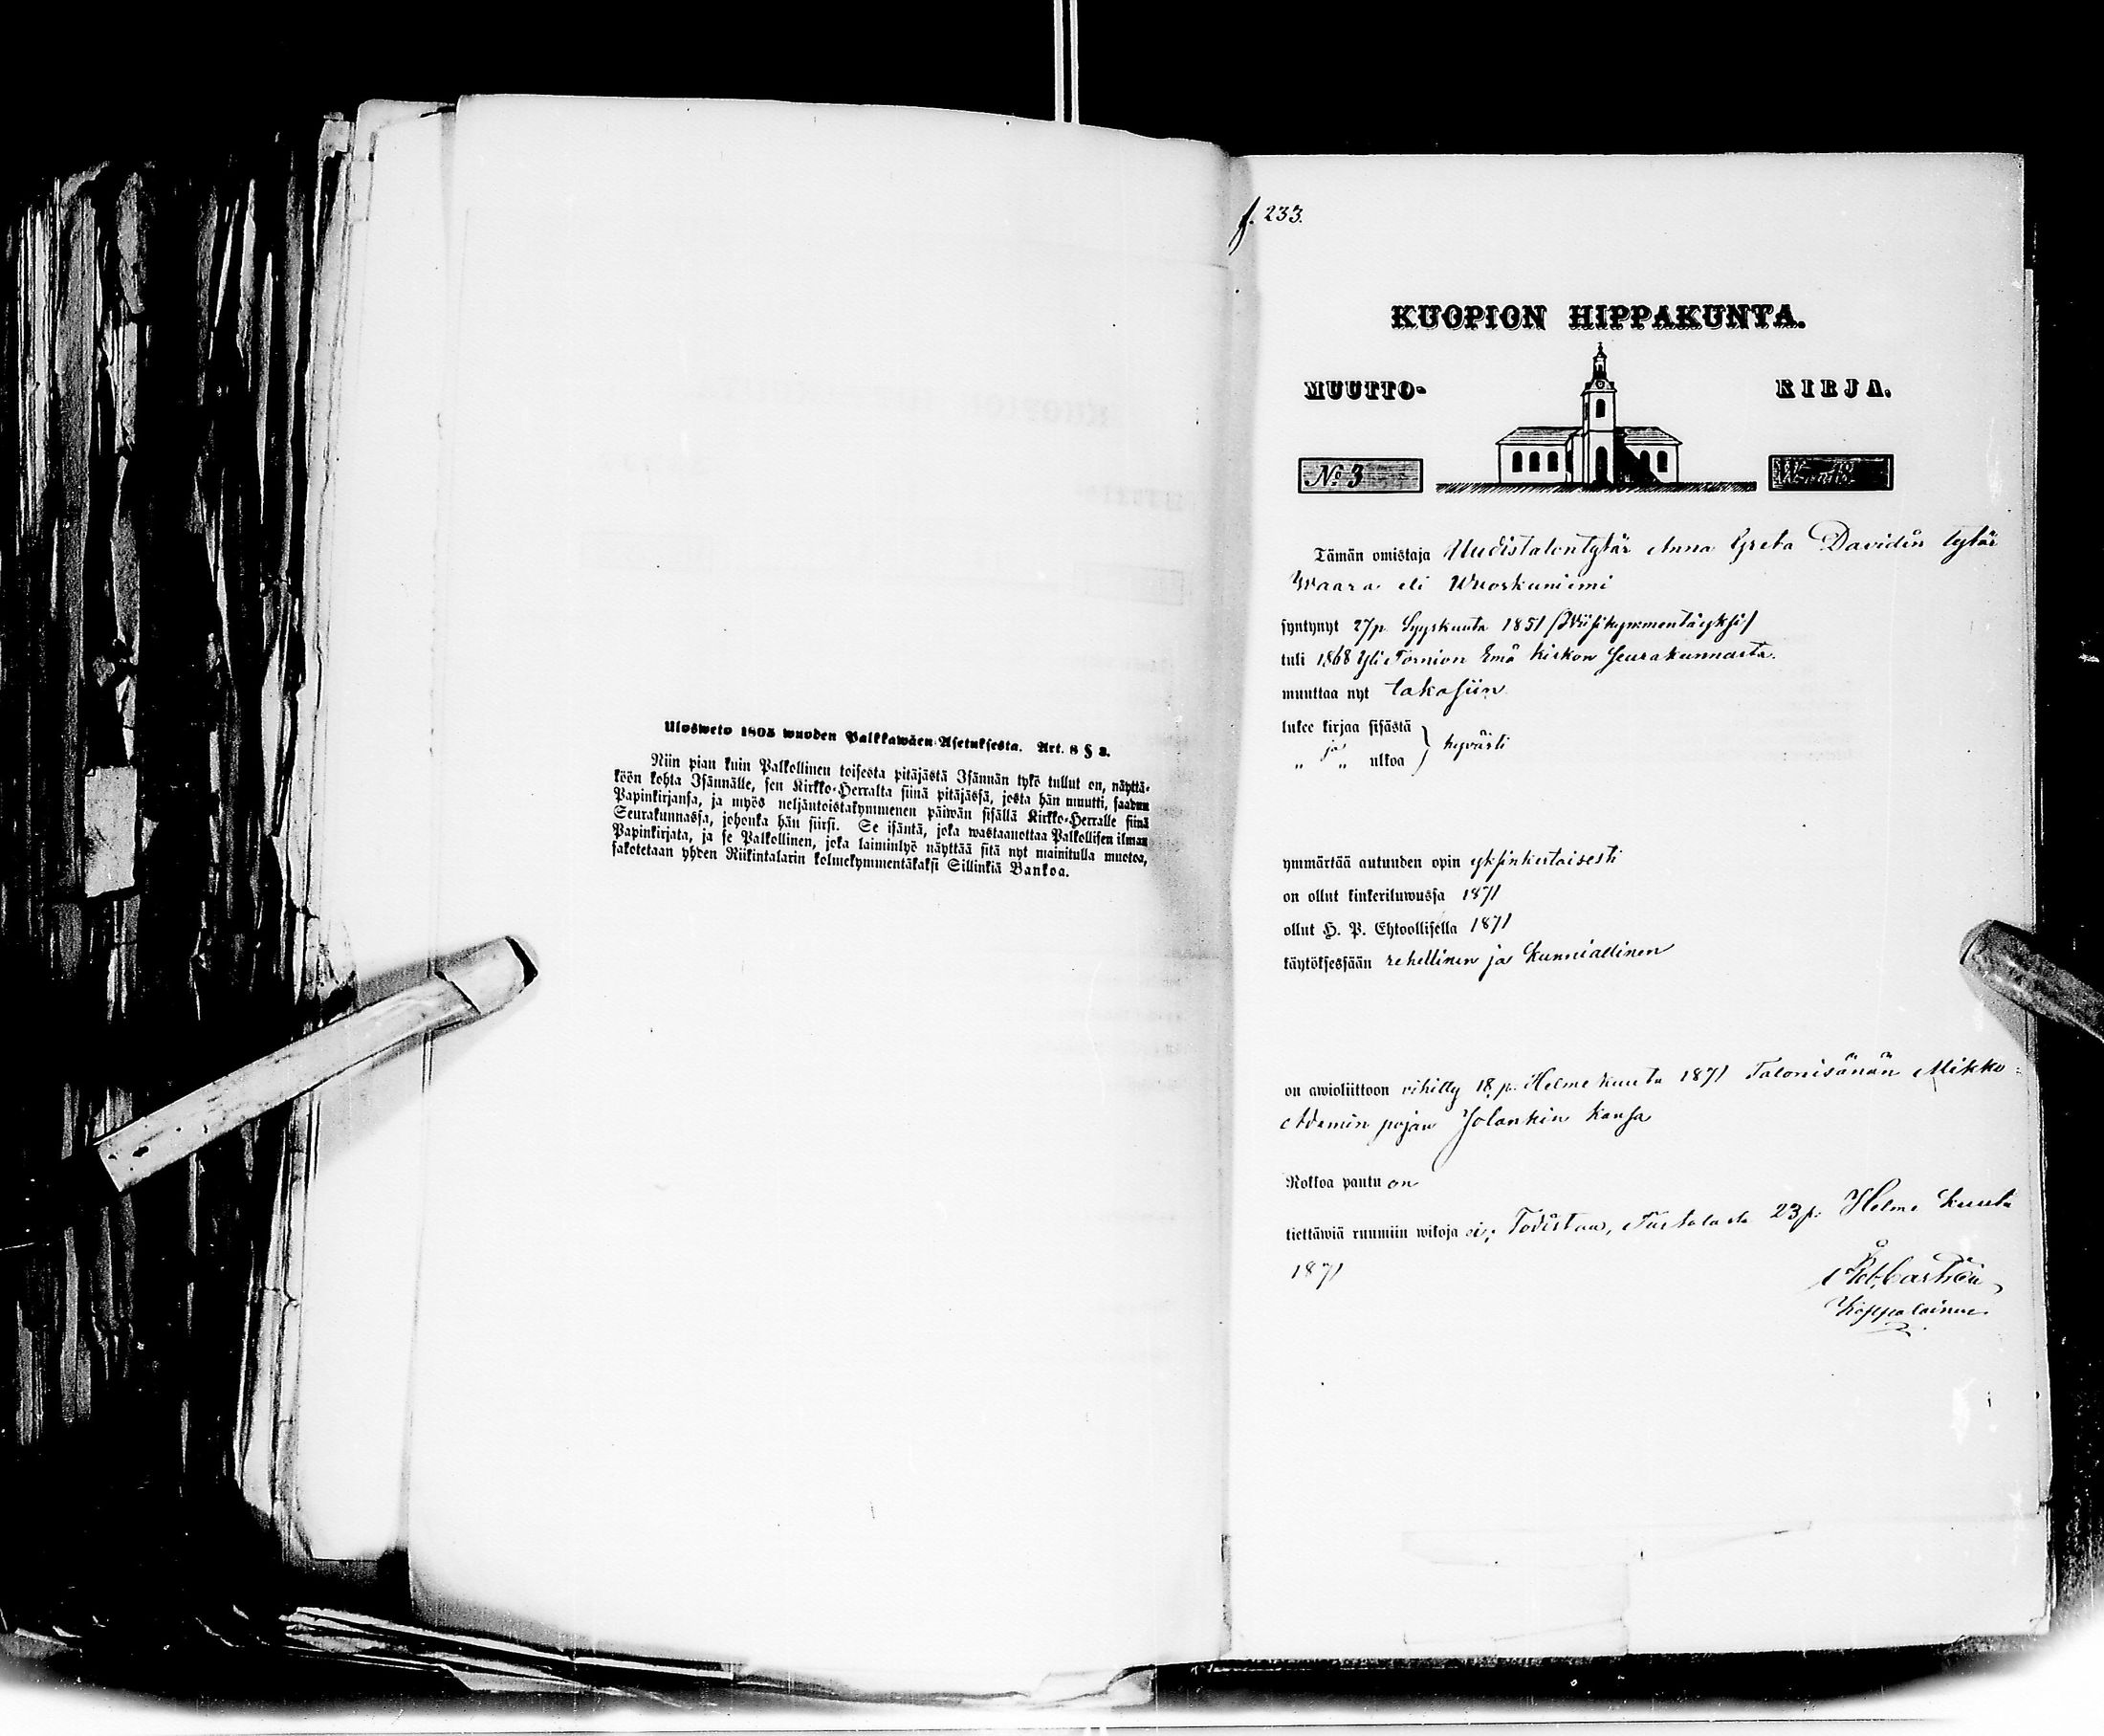 Ulosweto 1805 wuoden Palkkawäen Asetuksesta. Art. 8 § 3.
Niin pian kuin Palkollinen toisesta pitäjästä Isännän tykö tullut on, näyttä-
köön kohta Isännälle, sen Kirkko-Herralta siinä pitäjässä, josta hän muutti, saadun
Papinkirjansa, ja myös neljäntoistakymmenen päiwän sisällä Kirkko-Herralle siinä
Seurakunnassa, johonka hän siirsi. Se isäntä, joka wastaanottaa Palkollisen ilman
Papinkirjata, ja se Palkollinen, joka laiminlyö näyttää sitä nyt mainitulla muotoa,
sakotetaan yhden Riikintalarin kolmekymmentäkaksi Sillinkiä Bankoa.
f. 233.
KUOPION HIPPAKUNTA.
MUUTTO- KIRJA.
No 3
Tämän omistaja Uudistalontytär Anna Greta Davidin tytär
Waara eli Wuoskuniemi
syntynyt 27p. Syyskuuta 1851 /Wiisikymmentäyksi/
tuli 1868 Yli Tornion Emä kirkon Seurakunnasta.
muuttaa nyt takasiin
lukee kirjaa sisästä
ja hyvästi
„ „ ulkoa
ymmärtää autuuden opin yksinkertaisesti
on ollut kinkeriluwussa 1871
ollut H. P. Ehtoollisella 1871
käytöksessään rehellinen ja kunniallinen
on awioliittoon vihitty 18 p. Helmekuuta 1871 Talonisänän Mikko
Adamin pojan Jolankin kansa
Rokkoa pantu on
tiettäwiä ruumiin wikoja ei; Todistaa, Turtolasta 23p. Helme kuuta
1871
Castrén
Kappalainen